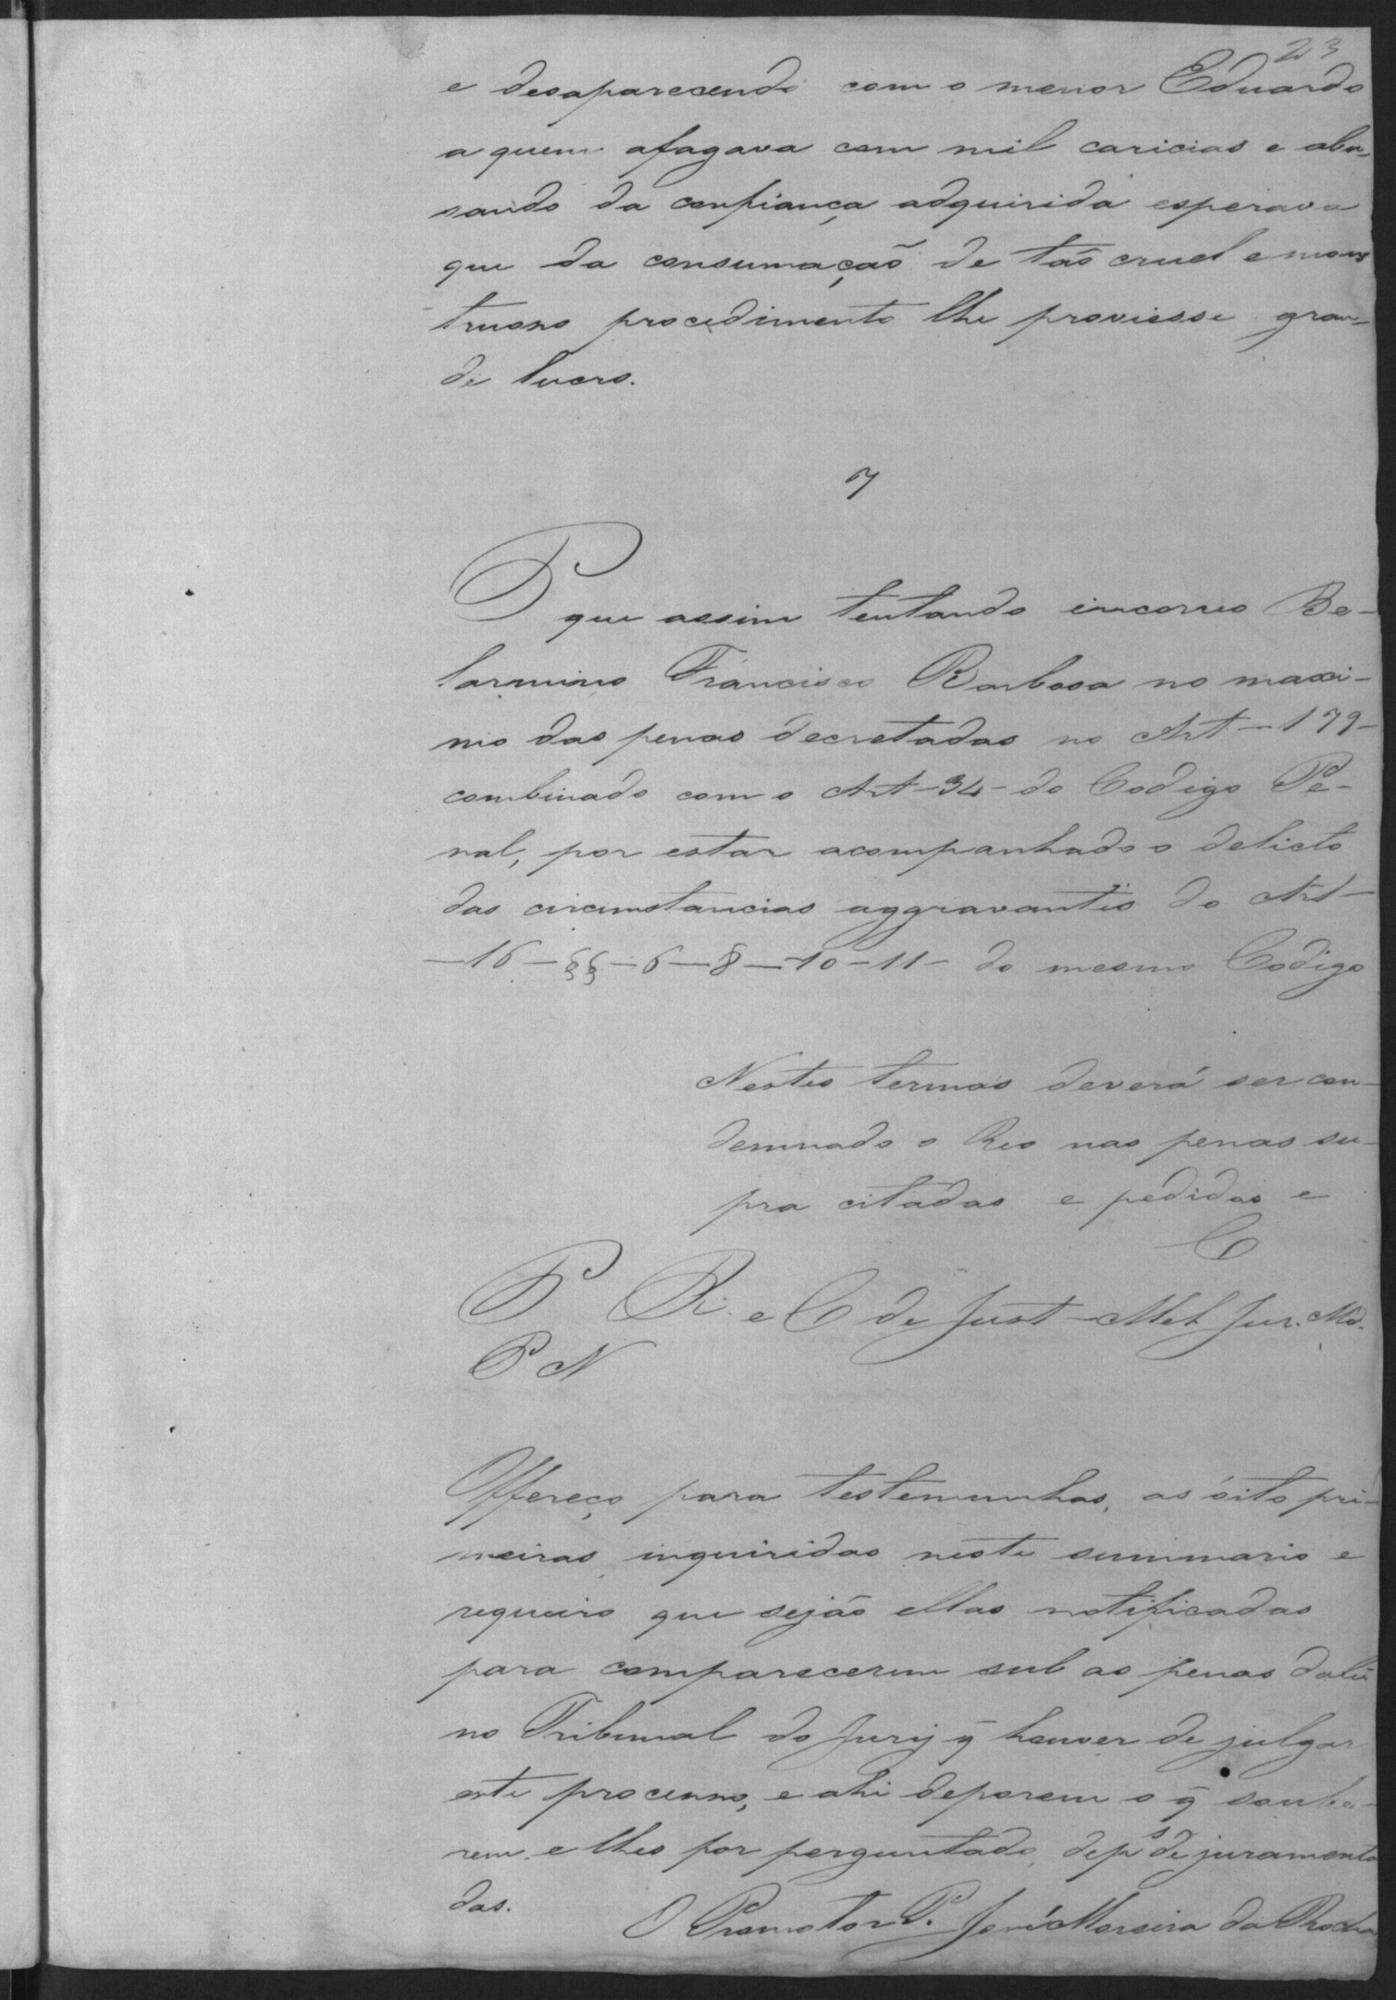 23
e desaparecendo com o menor Eduardo
a quem afagava com mil caricias e abu-
sando da confiança adquirida esperava
que da consumação de tão cruel e mons
truoso procedimento lhe proviesse gran-
de lucro.
7
P que assim tentando incorreo Be-
larmino Francisco Barbosa no maxi-
mo das penas decretadas no Art - 179 -
combinado com o Art - 34 - do Codigo Pe-
nal, por estar acompanhado o delicto
das circumstancias aggravantes do Art -
- 16 - §§ - 6 - 8 - 10 - 11 - do mesmo Codigo
Nestes termos deverá ser con-
demnado o Reo nas penas su-
pra citadas e pedidas e
C
P R. e C de Just - Mel Jur. Md.
P N
Offereço para testemunhas, as oito pri-
meiras inquiridas neste summario e
requeiro que sejão ellas notificadas
para comparecerem sub as penas da lei
no Tribunal do Jury q̃ houver de julgar
este processo, e ahi deporem o q̃ soube-
rem e lhes for perguntado, depˢ de juramenta
das.
O Promotor P. José Moreira da Rocha